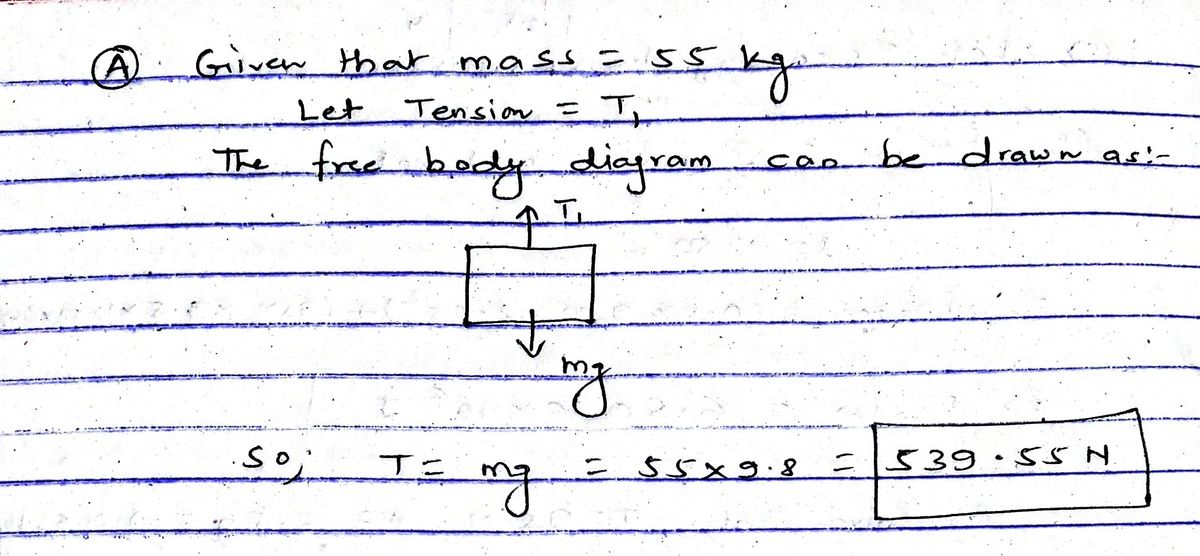 Ⓐ Given that mass = 55 kg
Let Tension = T₁
The free body diagram can be drawn as:-
T₁
mg
So, T = mg = 55×9.8 = 539.55 N